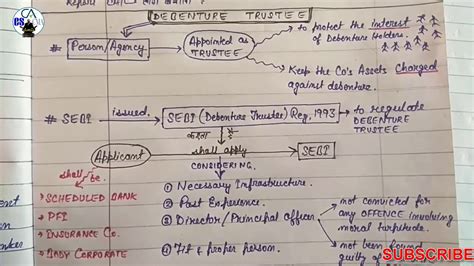 CS
DEBENTURE TRUSTEE
# Person/Agency
Appointed as TRUSTEE
to protect the interest of Debenture Holders.
Keep the Co's Assets Charged against debenture.
# SEBI issued SEBI (Debenture Trustee) Reg, 1993 to regulate DEBENTURE TRUSTEE
Applicant shall apply SEBI
shall be.
CONSIDERING.
SCHEDULED BANK
PFI
INSURANCE Co.
BODY CORPORATE
① Necessary Infrastructure.
② Past Experience.
③ Director/Principal officer
not convicted for any OFFENCE involving moral turpitude.
not been found guilty of
④ Fit & proper person.
SUBSCRIBE